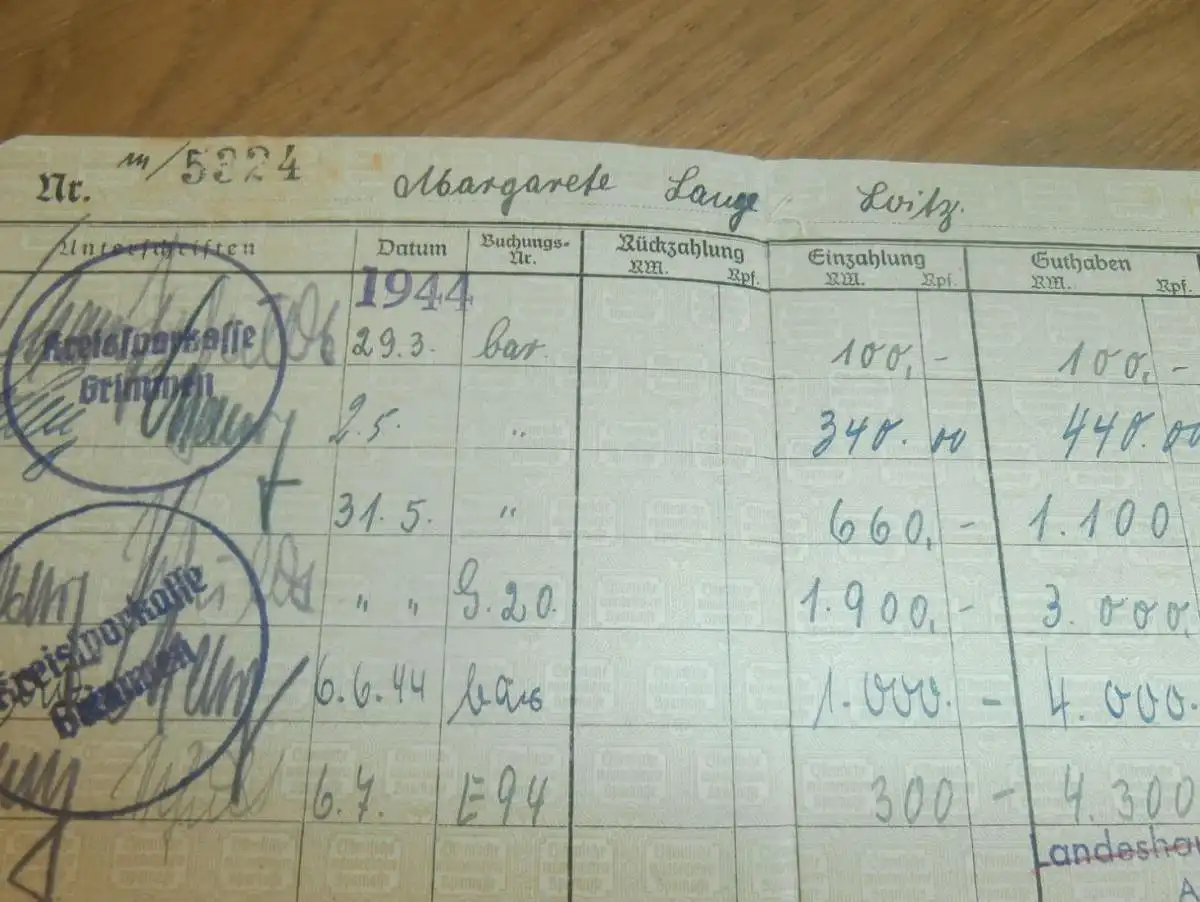 Nr. m/5324 Margarete Lange Loitz.
Unterschriften Datum Buchungs-Nr. Rückzahlung RM. Rpf. Einzahlung RM. Rpf. Guthaben RM. Rpf.
1944
Kreissparkasse Grimmen 29.3. bar. 100,- 100,-
2.5. " 340.00 440.00
31.5. " 660,- 1.100
Kreissparkasse Grimmen " " G.20. 1.900,- 3.000,
6.6.44 bar 1.000.- 4.000.
6.7. E94 300- 4.300
Landesha
A